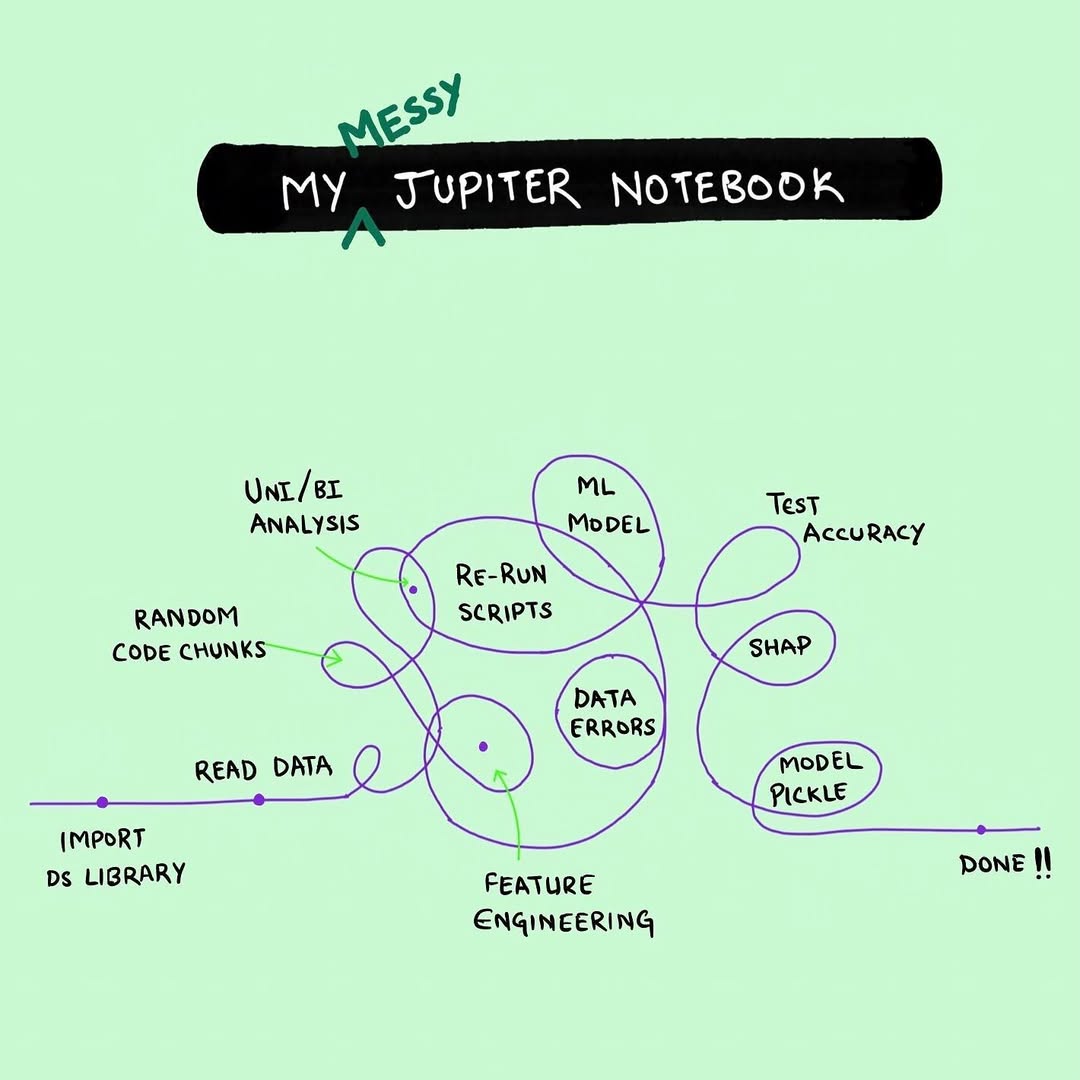 MESSY
MY JUPITER NOTEBOOK
UNI/BI
ANALYSIS
ML
MODEL
TEST
ACCURACY
RE-RUN
SCRIPTS
RANDOM
CODE CHUNKS
SHAP
DATA
ERRORS
READ DATA
MODEL
PICKLE
IMPORT
DS LIBRARY
DONE !!
FEATURE
ENGINEERING